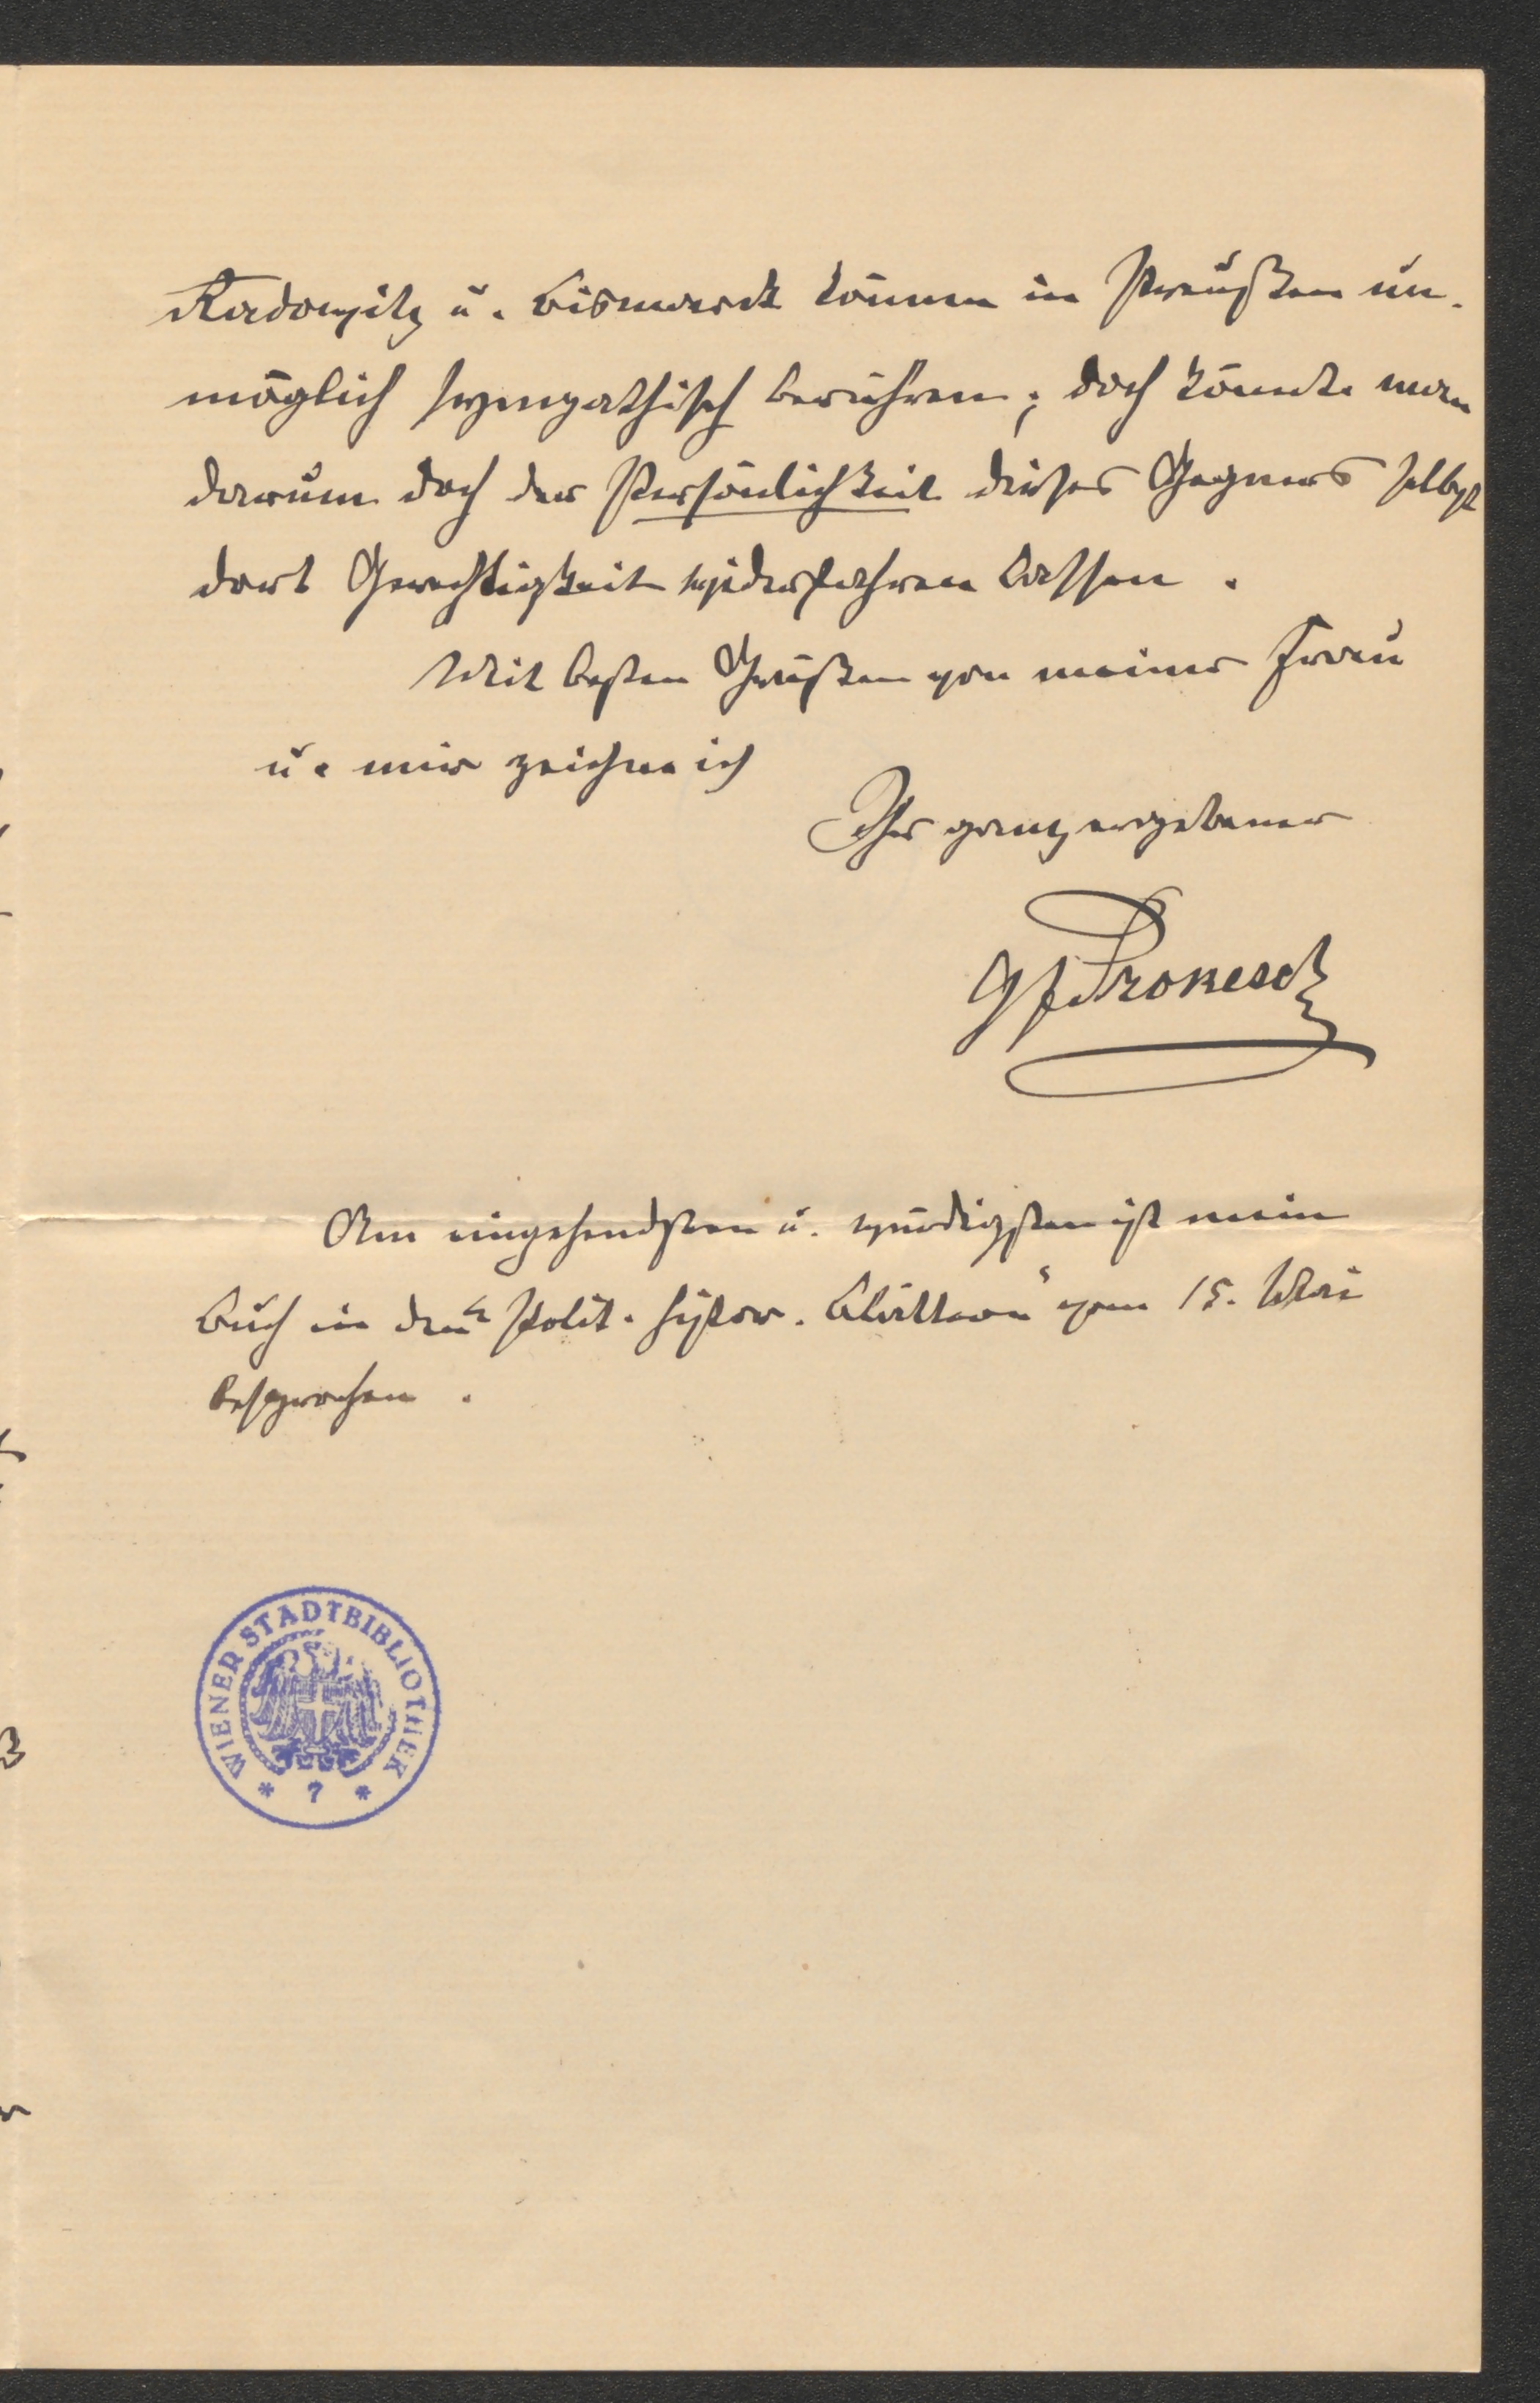 Radowitz u. Bismarck können in Preußen un-
möglich sympathisch berühren; doch könnte man
darum doch der Persönlichkeit dieses Gegners selbst
dort Gerechtigkeit widerfahren lassen.
Mit besten Grüßen von meiner Frau
u. mir zeichne ich
Ihr ganz ergebener
Gf Prokesch
Am eingehendsten u. würdigsten ist mein
Buch in den „Polit. histor. Blättern“ vom 15. Mai
besprochen.
WIENER STADTBIBLIOTHEK
* 7 *